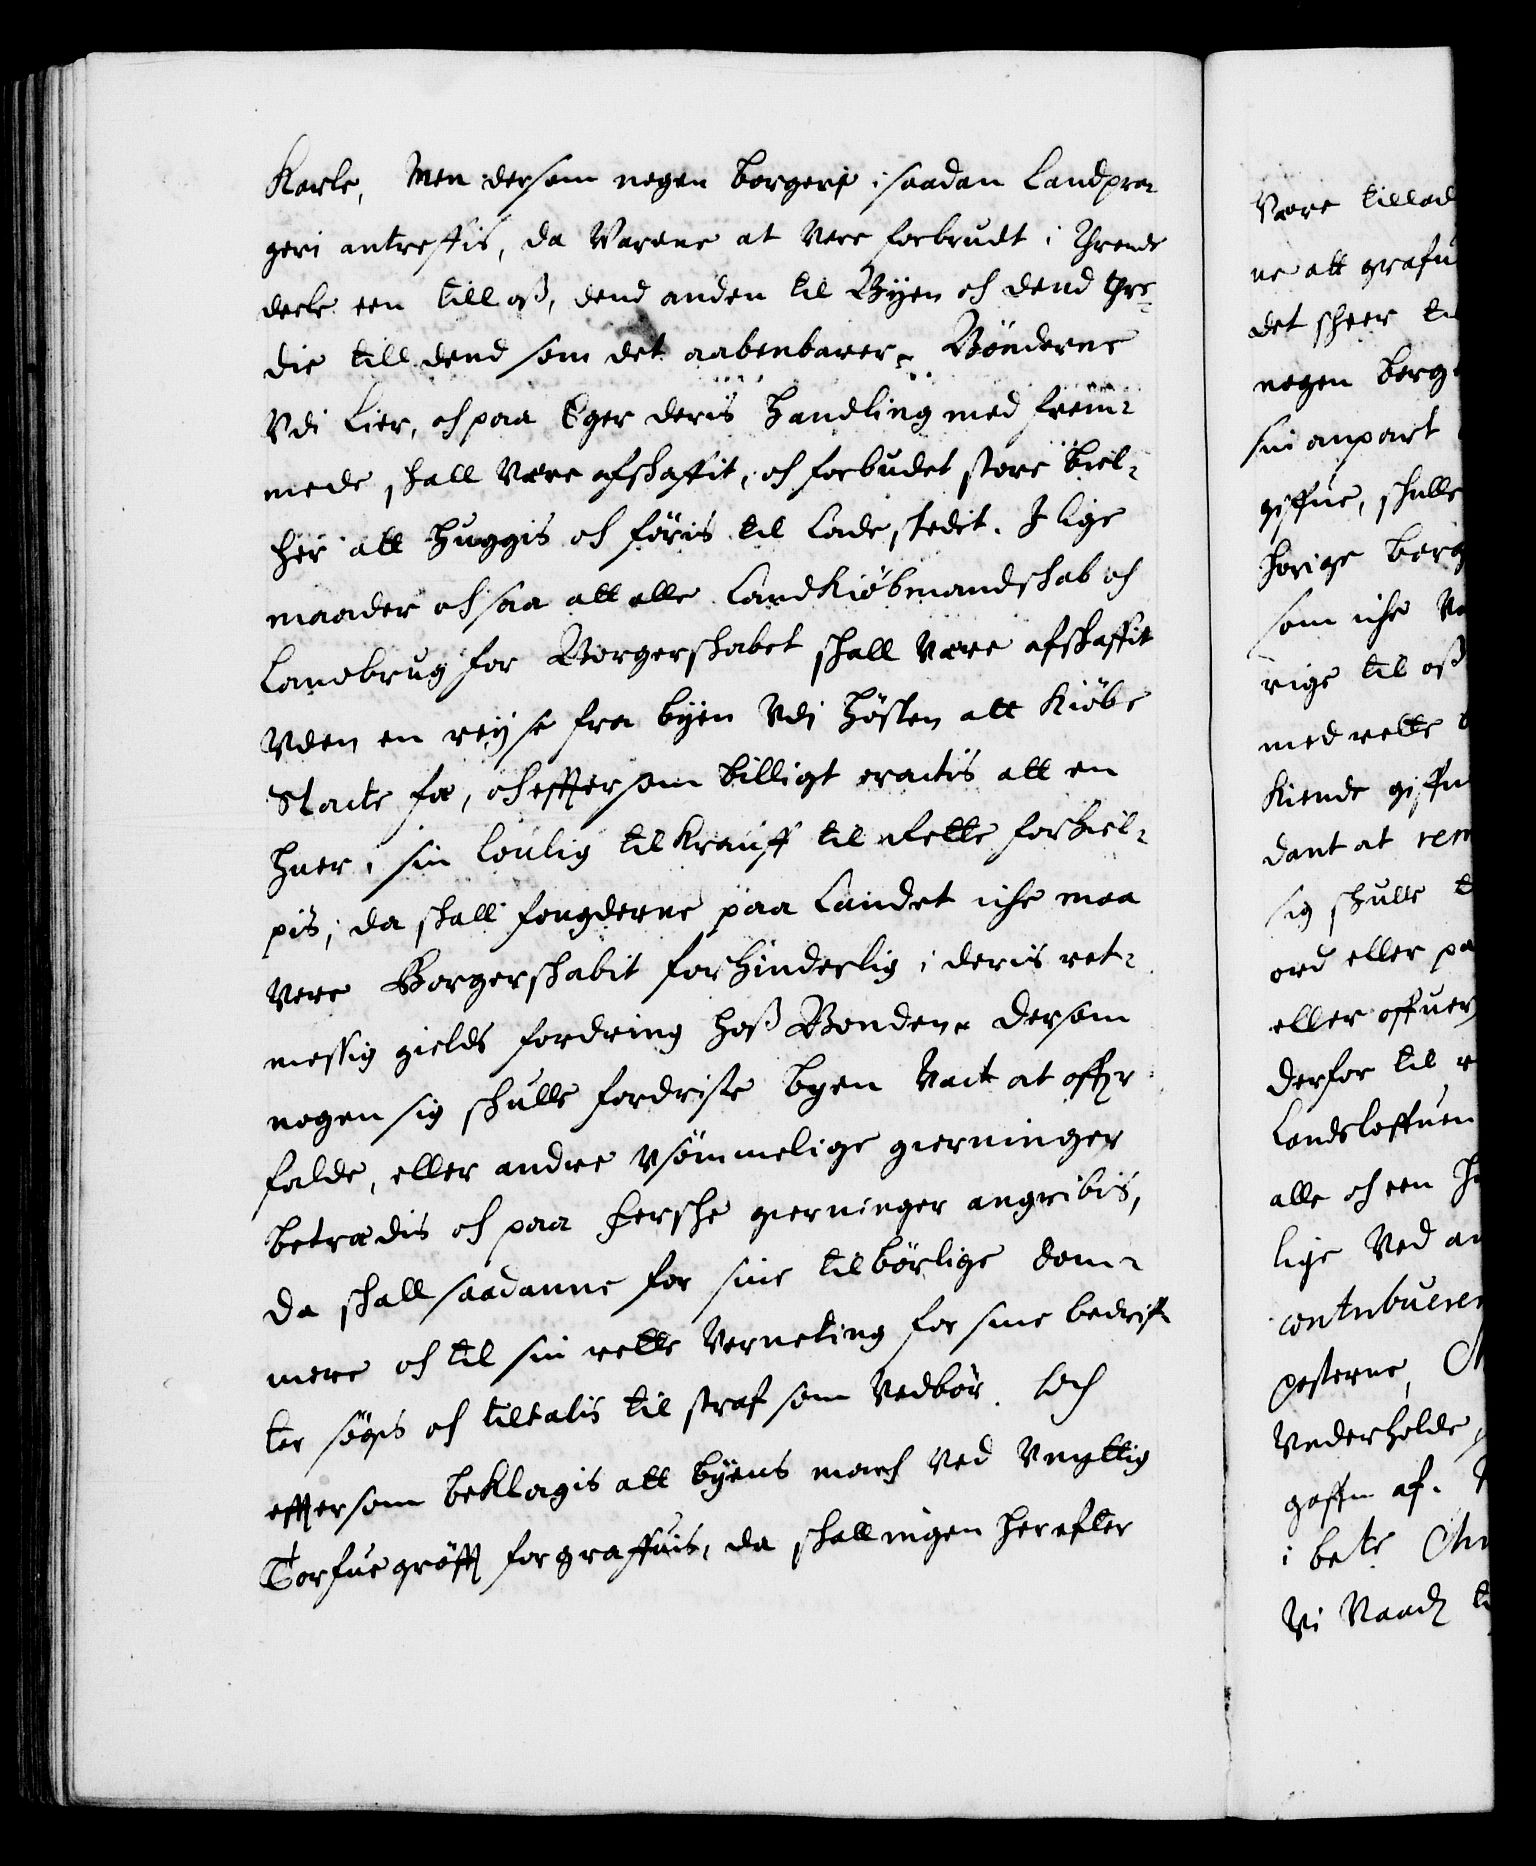 Karle, Men dersom nogen borgere i saadan Landpra-
geri antreffis, da Varene at vere forbrudt i Thrende
deele een till oss, dend anden til Byen och dend thre-
die till dend som det aabenbarer. Bønderne
Vdi Lier, och paa Eger deris handling med frem-
mede shall være afskaffit, och forbudet store biel-
her att huggis och føris til Ladestedit. J lige
maader och saa att alle Landkiøbmandskab och
Landbrug for Borgerskabet skall være afskaffit
Vden en reyse fra byen Vdi høsten att kiøbe
Slacte fæ, och effter som billigt eractis att en
huer i sin loulig tilkrauff til rette forhiel-
pis, da skall fougderne paa Landet iche maa
vere Borgerskabit forhinderlig i deris ret-
messig gields fordring hoss Bonden. dersom
nogen sig skulle fordriste byen Vact at offuer
falde, eller andre vsømmelige gierninger
betrædis och paa fersche gierninger angribis,
da skall saadanne for sine tilbørlige dom-
mere och til sin rette Verneting for sine bedrif-
ter søgis och tiltalis til straf som vedbør. Och
effter som beklagis att byens march ved Vnyttig
Torfue grøfft forgraffuis, da skall ingen herefter
Være tillad
ne att grafu
det skeer
nogen borg
sin anpart
giffue, skulle
hørige borg
som iche
rige til oss
med rette
kiende giffu
dant at rem
sig skulle
ord eller pa
eller offuer
derfor til
Landsloffuen
alle och een
lige Ved
contribuerer
posterne,
Vnderholde
goffn af.
i bete
Vi Naad